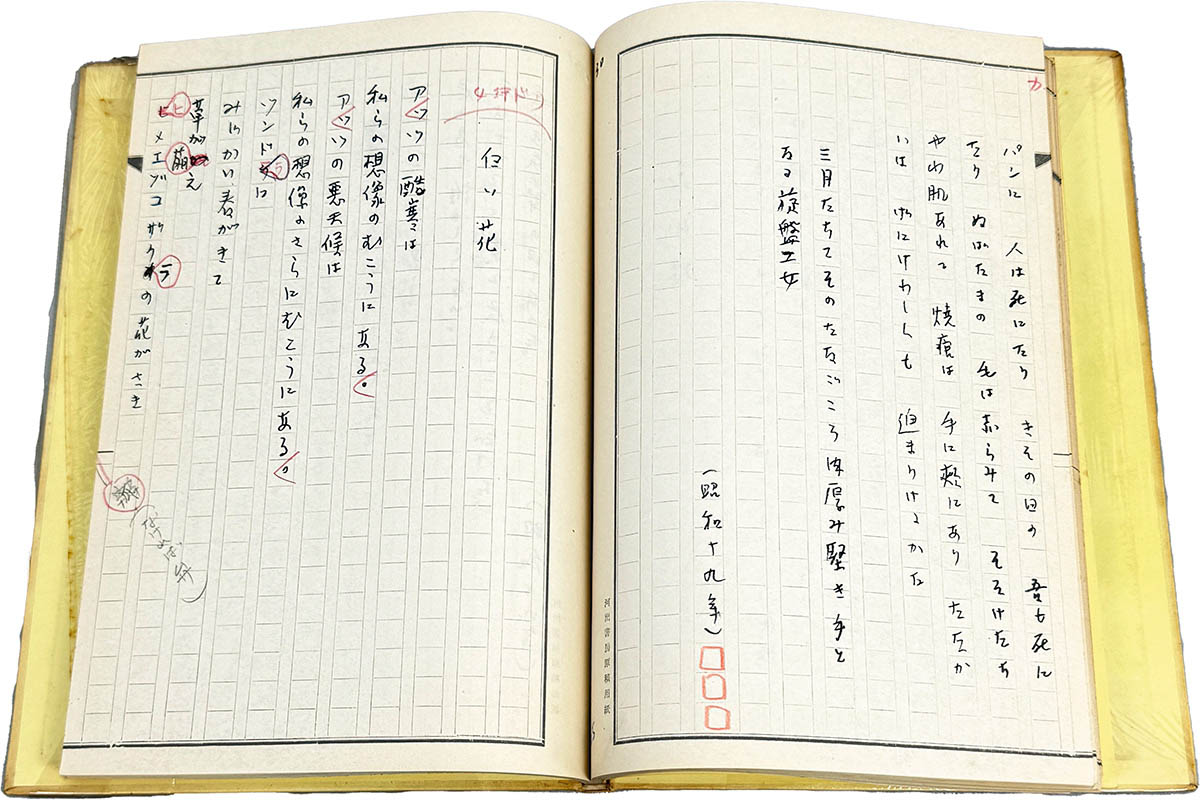 カ
パンに 人は死にたり きその日の 吾も死に
たり ぬばたまの 毛は赤らみて そそけたち
やわ肌あれて 焼痕は 手に頬にあり たたか
いは にけわしくも 迫まりけるかな
三月たちてそのたなごころ肉厚み堅き手と
なる旋盤工女
(昭和十九年)
河出書房原稿用紙
白い花
アッツの酷寒は
私らの想像のむこうにある。
アッツの悪天候は
私らの想像のさらにむこうにある。
ツンドラに
みじかい春がきて
草が萌え
ヒメエゾコザクラの花がさき